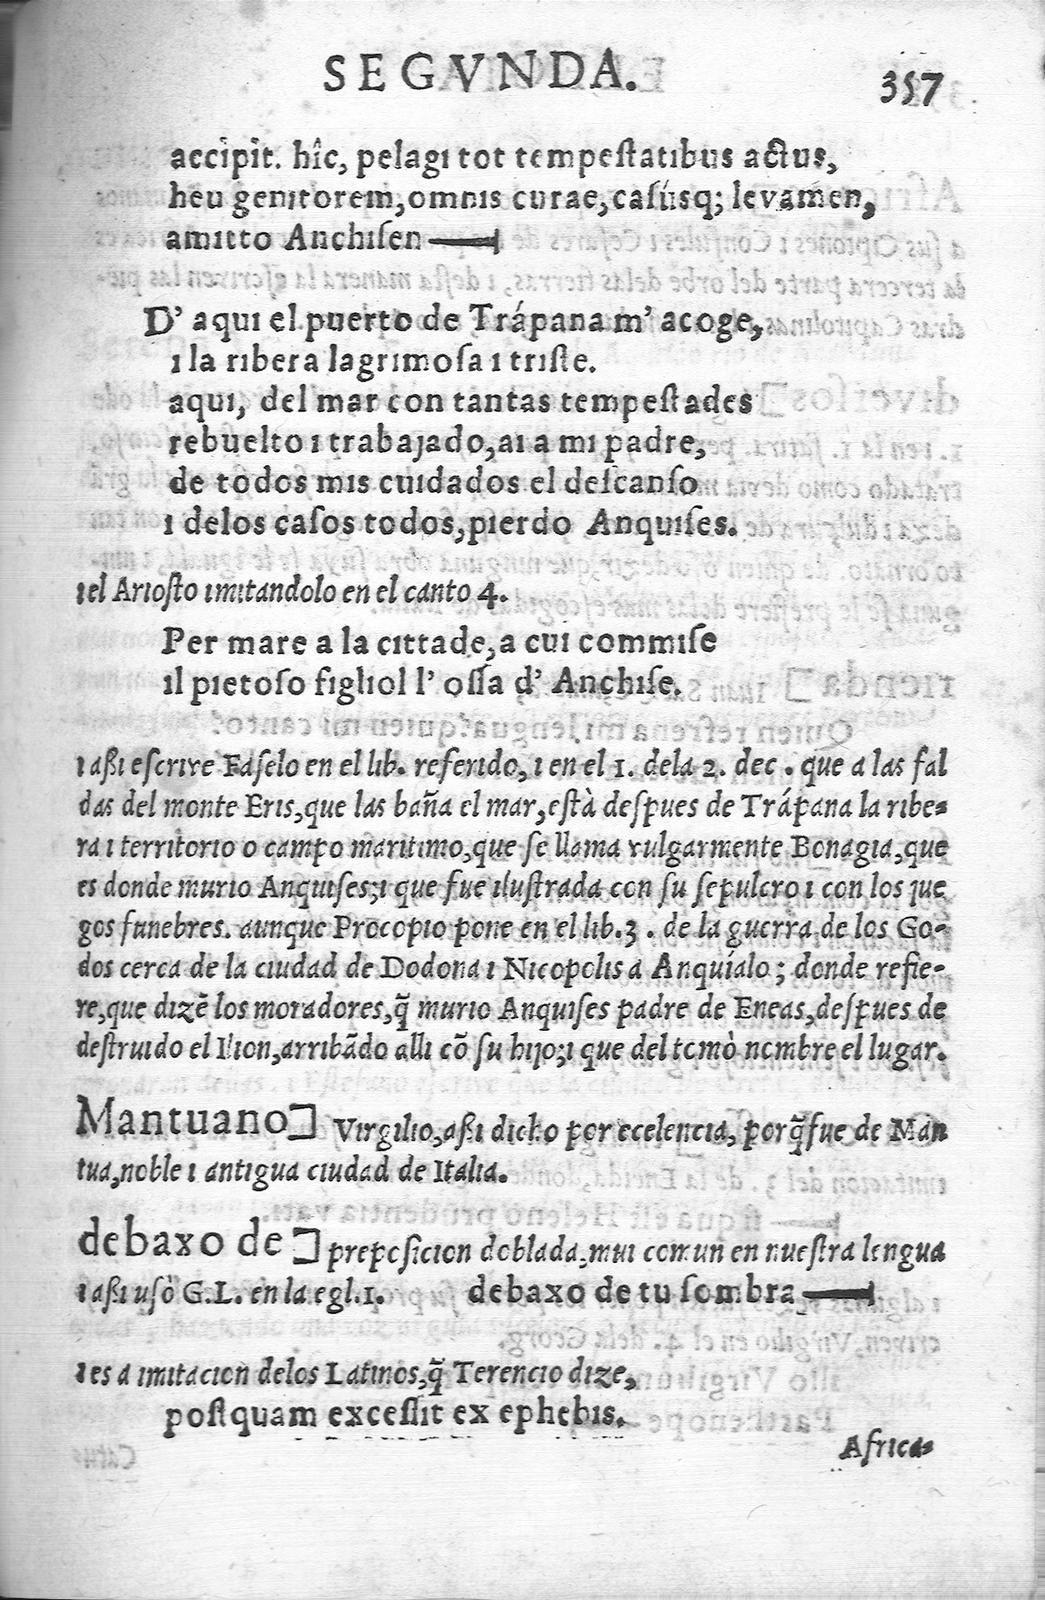 SEGVNDA.
357
accipit. hîc, pelagi tot tempeſtatibus actus,
heu genitorem, omnis curae, caſúsq; levamen,
amitto Anchiſen
D' aqui el puerto de Trápana m' acoge,
ı la ribera lagrimoſa ı triſte.
aqui, del mar con tantas tempeſtades
rebuelto ı trabajado, ai a mi padre,
de todos mis cuidados el deſcanſo
ı delos caſos todos, pierdo Anquiſes.
ı el Arioſto imitandolo en el canto 4.
Per mare a la cittade, a cui commiſe
il pietoſo figliol l' oſſa d' Anchiſe.
ı aſsi eſcrive Faſelo en el lib. referido, ı en el 1. dela 2. dec. que a las fal
das del monte Eris, que las baña el mar, eſtà deſpues de Trápana la ribe-
ra ı territorio o campo maritimo, que ſe llama vulgarmente Bonagia, que
es donde murio Anquiſes; ı que fue iluſtrada con ſu ſepulcro ı con los jue
gos funebres. aunque Procopio pone en el lib. 3. de la guerra de los Go-
dos cerca de la ciudad de Dodona ı Nicopolis a Anquíalo; donde refie-
re, que dizẽ los moradores, q̃ murio Anquiſes padre de Eneas, deſpues de
deſtruido el Ilion, arribãdo alli cõ ſu hijo; ı que del tomò nombre el lugar.
Mantuano] Virgilio, aſsi dicho por ecelencia, porq̃ fue de Man
tua, noble ı antigua ciudad de Italia.
debaxo de] prepoſicion doblada, mui comun en nueſtra lengua
ı aſsi uſò G.L. en la egl. 1. debaxo de tu ſombra
ı es a imitacion delos Latinos, q̃ Terencio dize,
poſtquam exceſſit ex ephebis.
Africa-